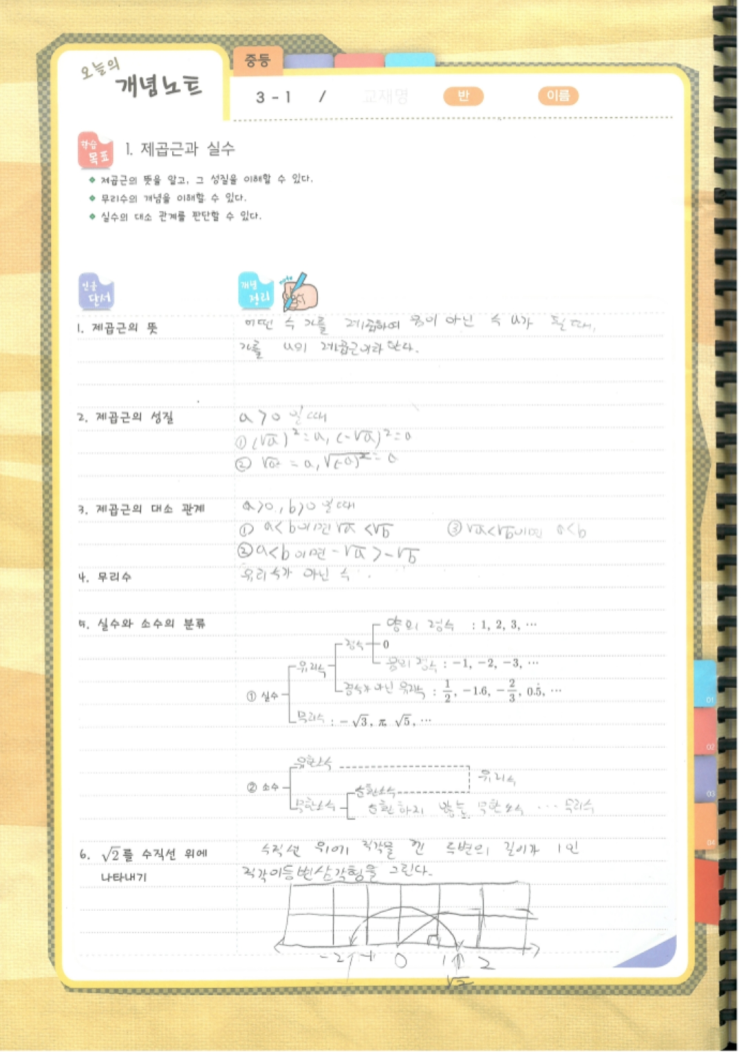 오늘의
개념노트
중등
3-1 / 교재명 반 이름
학습
목표
1. 제곱근과 실수
제곱근의 뜻을 알고, 그 성질을 이해할 수 있다.
무리수의 개념을 이해할 수 있다.
실수의 대소 관계를 판단할 수 있다.
단서
개념
정리
1. 제곱근의 뜻
어떤 수 x를 제곱하여 음이 아닌 수 a가 될 때,
x를 a의 제곱근이라 한다.
2. 제곱근의 성질
a>0 일 때
① (√a)²=a, (-√a)²=a
② √a² = a, √(-a)² = a
3. 제곱근의 대소 관계
a>0, b>0 일 때
① a<b이면 √a<√b ③ √a<√b이면 a<b
② a<b이면 -√a>-√b
4. 무리수
유리수가 아닌 수.
5. 실수와 소수의 분류
양의 정수 : 1, 2, 3, …
정수 0
유리수 음의 정수 : -1, -2, -3, …
① 실수 정수가 아닌 유리수 : 1/2, -1.6, -2/3, 0.5̇, …
무리수 : -√3, π, √5, …
유한소수
② 소수 순환소수 유리수
무한소수 순환하지 않는 무한소수 … 무리수
6. √2를 수직선 위에
나타내기
수직선 위에 직각을 낀 두변의 길이가 1인
직각이등변삼각형을 그린다.
-2 -1 0 1 2
√2
01
02
03
04